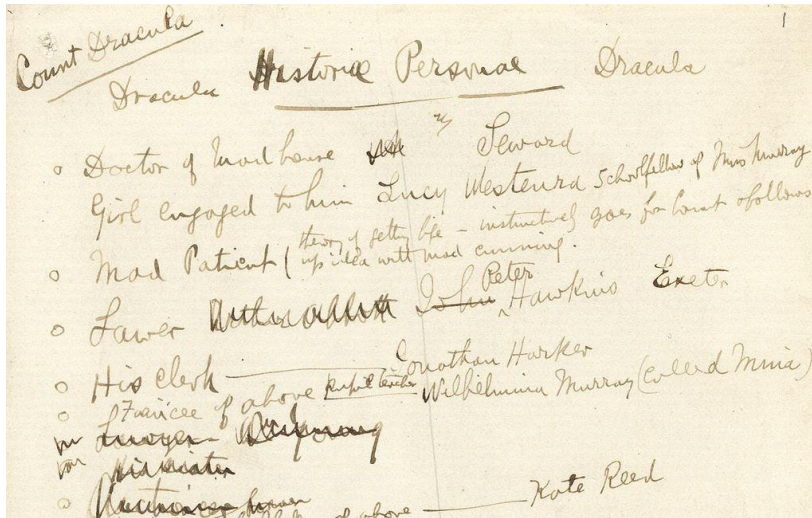 1
Count Dracula
Dracula Historiae Personae Dracula
Doctor of Mad house Seward
Girl engaged to him Lucy Westenra Schoolfellow of Miss Murray
Mad Patient (theory of getting life – instinctively goes for Count & follows
up idea with mad cunning.
Lawer John Peter Hawkins Exeter
His Clerk ——— Jonathan Harker
Fiancée of above pupil teacher Wilhelmina Murray (called Mina)
Lawyer
of above ——— Kate Reed